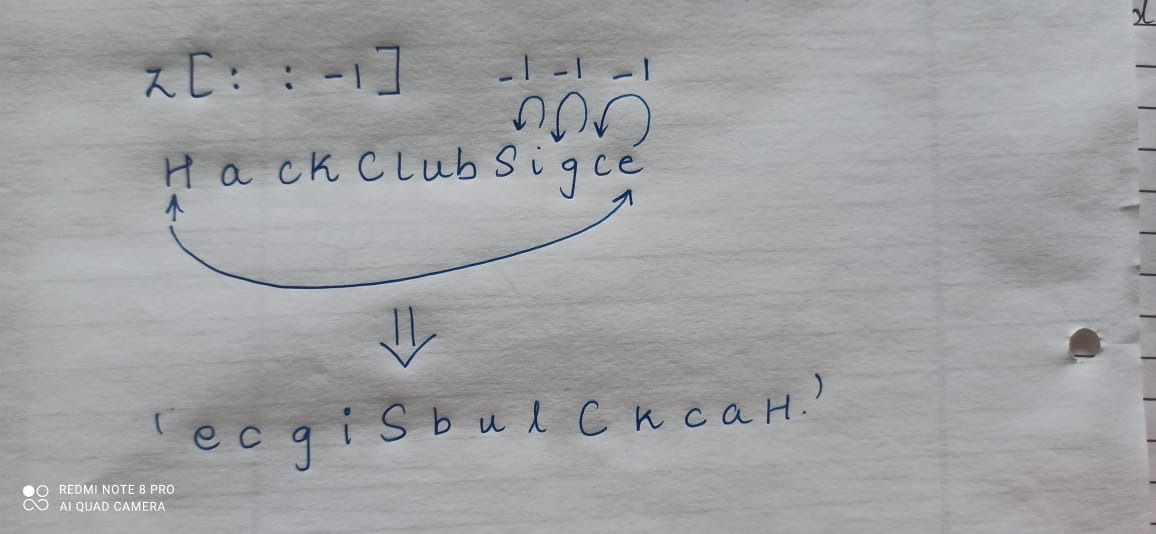 z[: : -1]
-1 -1 -1
HackClubSigce
'ecgiSbulCkcaH.'
REDMI NOTE 8 PRO
AI QUAD CAMERA